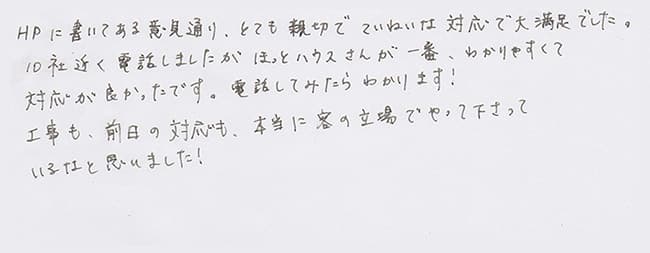 HPに書いてある意見通り、とても親切でていねいな対応で大満足でした。
10社近く電話しましたがほっとハウスさんが一番、わかりやすくて
対応が良かったです。電話してみたらわかります！
工事も、前日の対応も、本当に客の立場でやって下さって
いるなと思いました！